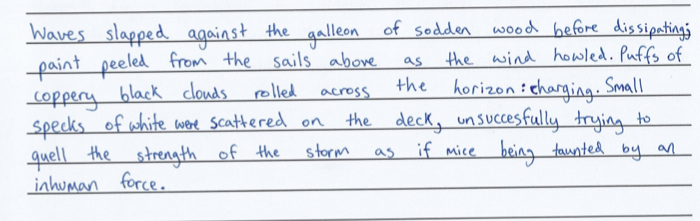 Waves slapped against the galleon of sodden wood before dissipating;
paint peeled from the sails above as the wind howled. Puffs of
coppery black clouds rolled across the horizon: charging. Small
specks of white were scattered on the deck, unsuccesfully trying to
quell the strength of the storm as if mice being taunted by an
inhuman force.